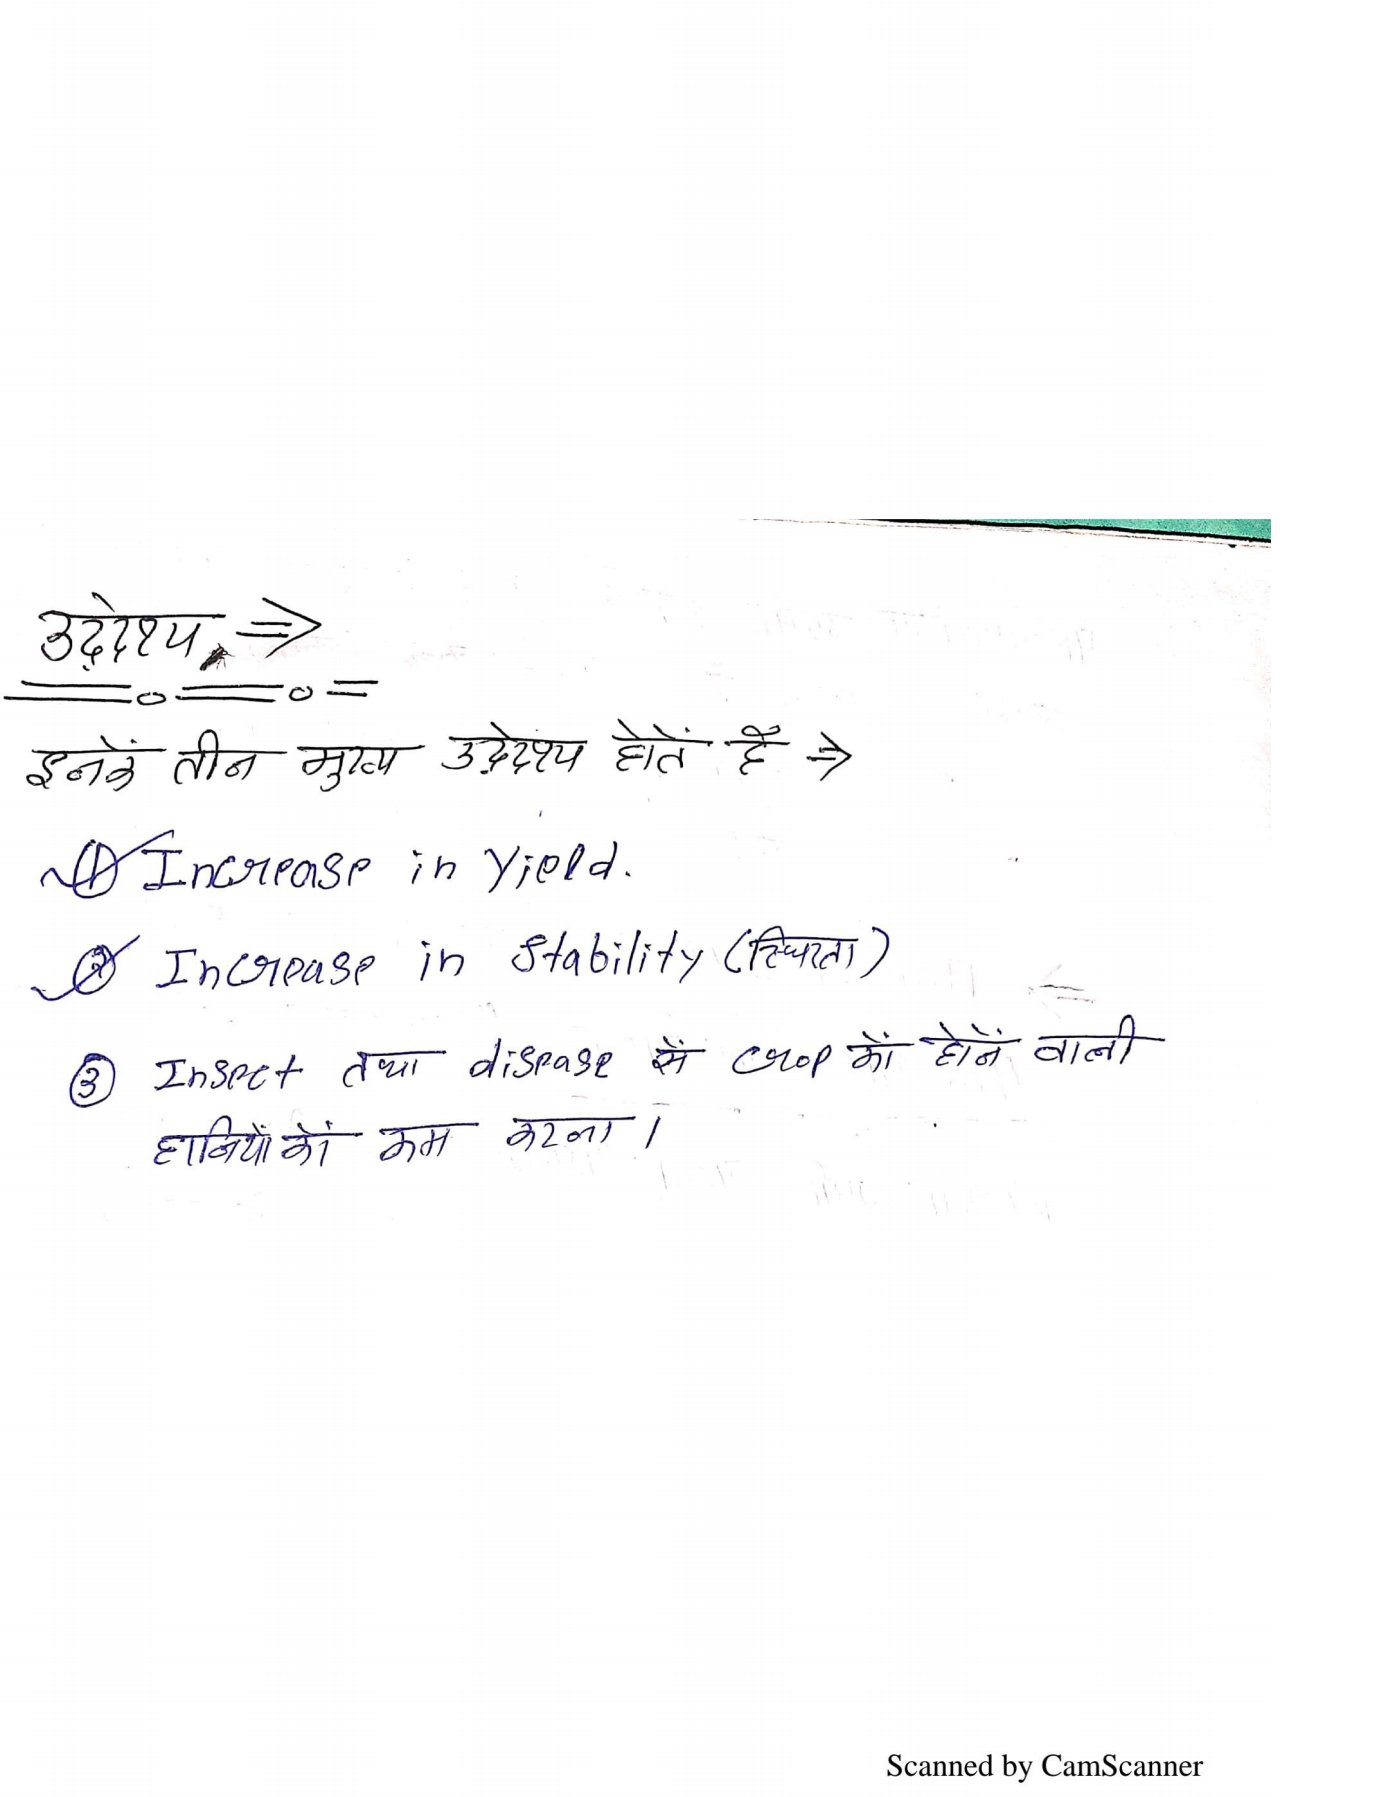 उद्देश्य ⇒
इनकें तीन मुख्य उद्देश्य होतें हैं ⇒
① Increase in Yield.
② Increase in Stability (स्थिरता)
③ Insect तथा disease सें crop कों होनें वाली
हानियों कों कम करना ।
Scanned by CamScanner